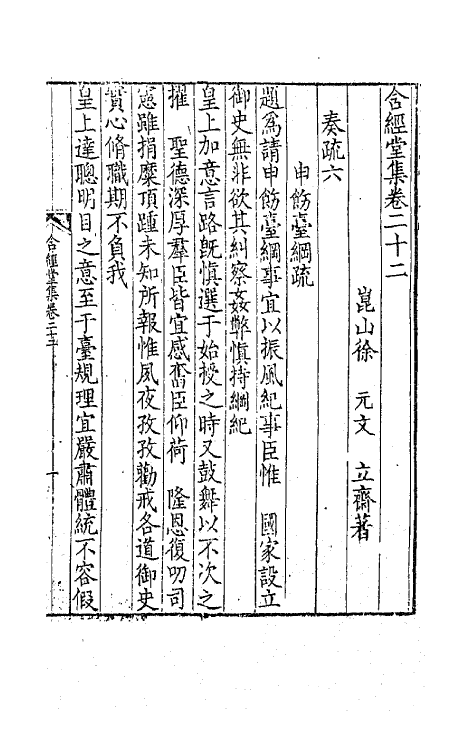 含經堂集卷二十二
崑山徐 元文 立齋著
奏疏六
申飭臺綱疏
題爲請申飭臺綱事宜以振風紀事臣惟 國家設立
御史無非欲其糾察姦弊愼持綱紀
皇上加意言路旣愼選于始授之時又鼓舞以不次之
擢 聖德深厚羣臣皆宜感奮臣仰荷 隆恩復叨司
憲雖捐糜頂踵未知所報惟夙夜孜孜勸戒各道御史
實心脩職期不負我
皇上達聰明目之意至于臺規理宜嚴肅體統不容假
含經堂集卷二十二 一